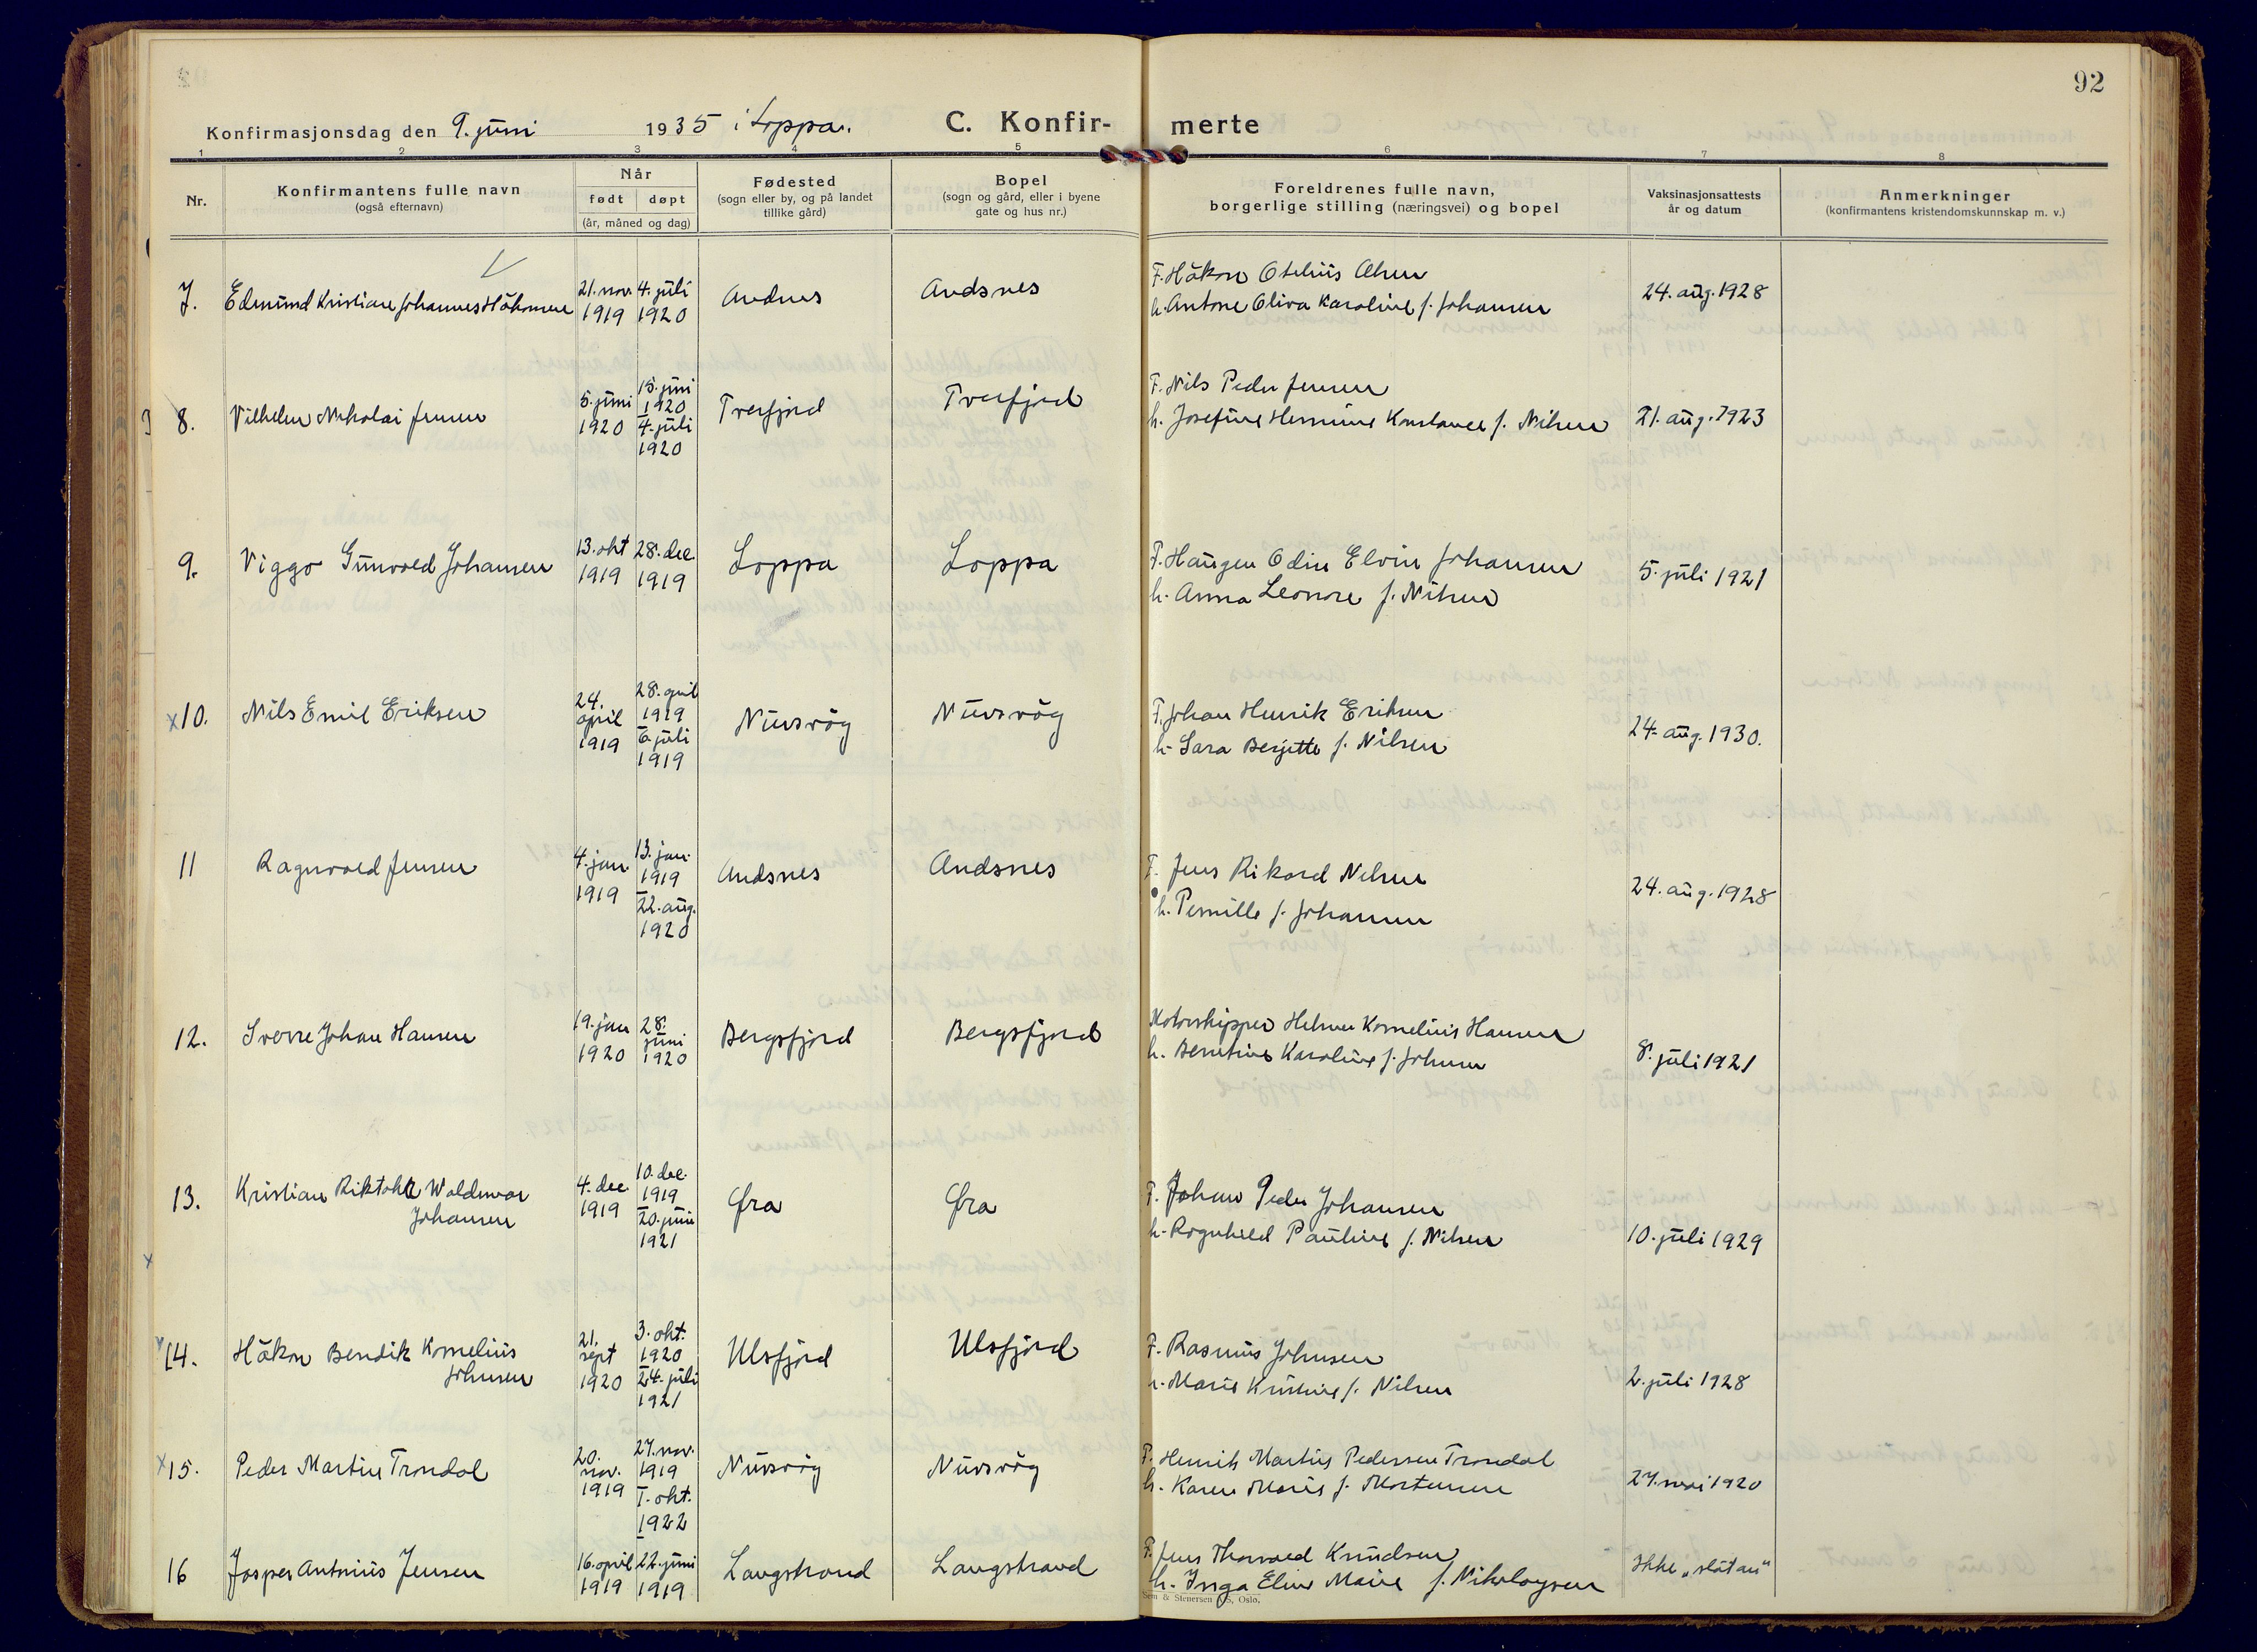 92
Konfirmasjonsdag den 9. juni 1935 i Loppa.
C. Konfirmerte
1 2 3 4 5 6 7 8
Nr.
Konfirmantens fulle navn
(også efternavn)
Når
født døpt
(år, måned og dag)
Fødested
(sogn eller by, og på landet
tillike gård)
Bopel
(sogn og gård, eller i byene
gate og hus nr.)
Foreldrenes fulle navn,
borgerlige stilling (næringsvei) og bopel
Vaksinasjonsattests
år og datum
Anmerkninger
(konfirmantens kristendomskunnskap m. v.)
7. Edmund Kristian Johannes Håkonsen
21. nov. 1919
4. juli 1920
Andsnes
Andsnes
F. Håkon Otelius Olsen
h. Antone Oliva Karoline f. Johansen
24. aug. 1928
8. Vilhelm Nikolai Jensen
5. juni 1920
15. juni 1920
4. juli 1920
Tverfjord
Tverfjord
F. Nils Peder Jensen
h. Josefine Hermine Konstance f. Nilsen
21. aug. 1923
9. Viggo Gunvald Johansen
13. okt 1919
28. dec. 1919
Loppa
Loppa
F. Haugen Odin Elvin Johansen
h. Anna Leonore f. Nilsen
5. juli 1921
x10. Nils Emil Eriksen
24. april 1919
28. april 1919
6. juli 1919
Nuvsvåg
Nuvsvåg
F. Johan Henrik Eriksen
h. Sara Berjitte f. Nilsen
24. aug. 1930.
11 Ragnvald Jensen
4. jan 1919
13. jan. 1919
22. aug. 1920
Andsnes
Andsnes
F. Jens Rikard Nilsen
h. Pernille f. Johansen
24. aug. 1928
12. Sverre Johan Hansen
19. jan 1920
28. juni 1920
Bergsfjord
Bergsfjord
Motorskipper Helmer Kornelius Hansen
h. Berntine Karoline f. Johnsen
8. juli 1921
13. Kristian Waldemar
Johansen
4. dec. 1919
10. dec. 1919
20. juni 1921
Øra
Øra
F. Johan Peder Johansen
h. Ragnhild Pauline f. Nilsen
10. juli 1929
14. Håkon Bendik Kornelius
Johnsen
21. sept 1920
3. okt. 1920
24. juli 1921
Ulsfjord
Ulsfjord
F. Rasmus Johnsen
h. Marie Kristine f. Nilsen
2. juli 1928
x15. Peder Martin Trondal
20. nov. 1919
27. nov. 1919
1. okt. 1922
Nuvsvåg
Nuvsvåg
F. Henrik Martin Pedersen Trondal
h. Karen Marie f. Mortensen
27. mai 1920
16 Jasper Antonius Jensen
16. april 1919
22. juni 1919
Langstrand
Langstrand
F. Jens Thorvald Knudsen
h. Inga Eline Marie f. Nikolaysen
Ikke „slåt an"
Sem & Stenersen A/S, Oslo.